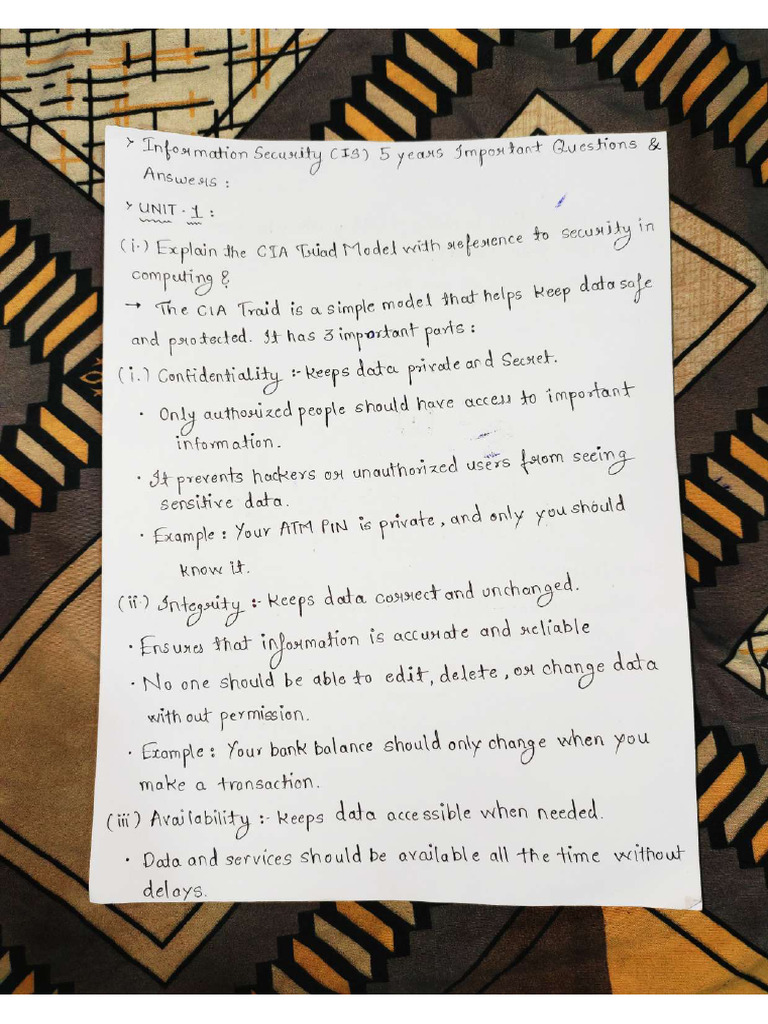 > Information Security (IS) 5 years Important Questions &
Answers :
> UNIT - 1 :
(i.) Explain the CIA Triad Model with reference to security in
computing ?
→ The CIA Traid is a simple model that helps keep data safe
and protected. It has 3 important parts :
(i.) Confidentiality :- keeps data private and Secret.
• Only authorized people should have access to important
information.
• It prevents hackers or unauthorized users from seeing
sensitive data.
• Example : Your ATM PIN is private, and only you should
know it.
(ii.) Integrity :- keeps data correct and unchanged.
• Ensures that information is accurate and reliable
• No one should be able to edit, delete, or change data
without permission.
• Example : Your bank balance should only change when you
make a transaction.
(iii) Availability :- keeps data accessible when needed.
• Data and services should be available all the time without
delays.